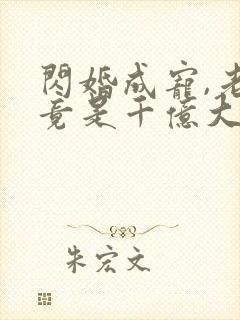 閃婚成寵,老
竟是千億大
朱宏文